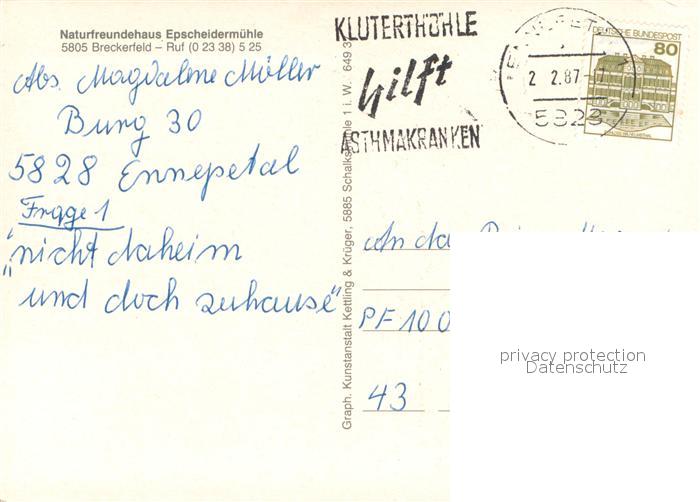 Naturfreundehaus Epscheidermühle
5805 Breckerfeld – Ruf (0 23 38) 5 25
Abs. Magdalene Möller
Burg 30
5828 Ennepetal
Frage 1
"nicht daheim
und doch zuhause"
Graph. Kunstanstalt Kettling & Krüger, 5885 Schalksmühle 1 i. W. 649 3
KLUTERTHÖHLE
hilft
ASTHMAKRANKEN
2.2.87-17
5828
DEUTSCHE BUNDESPOST
80
An da
PF 100
43
privacy protection
Datenschutz